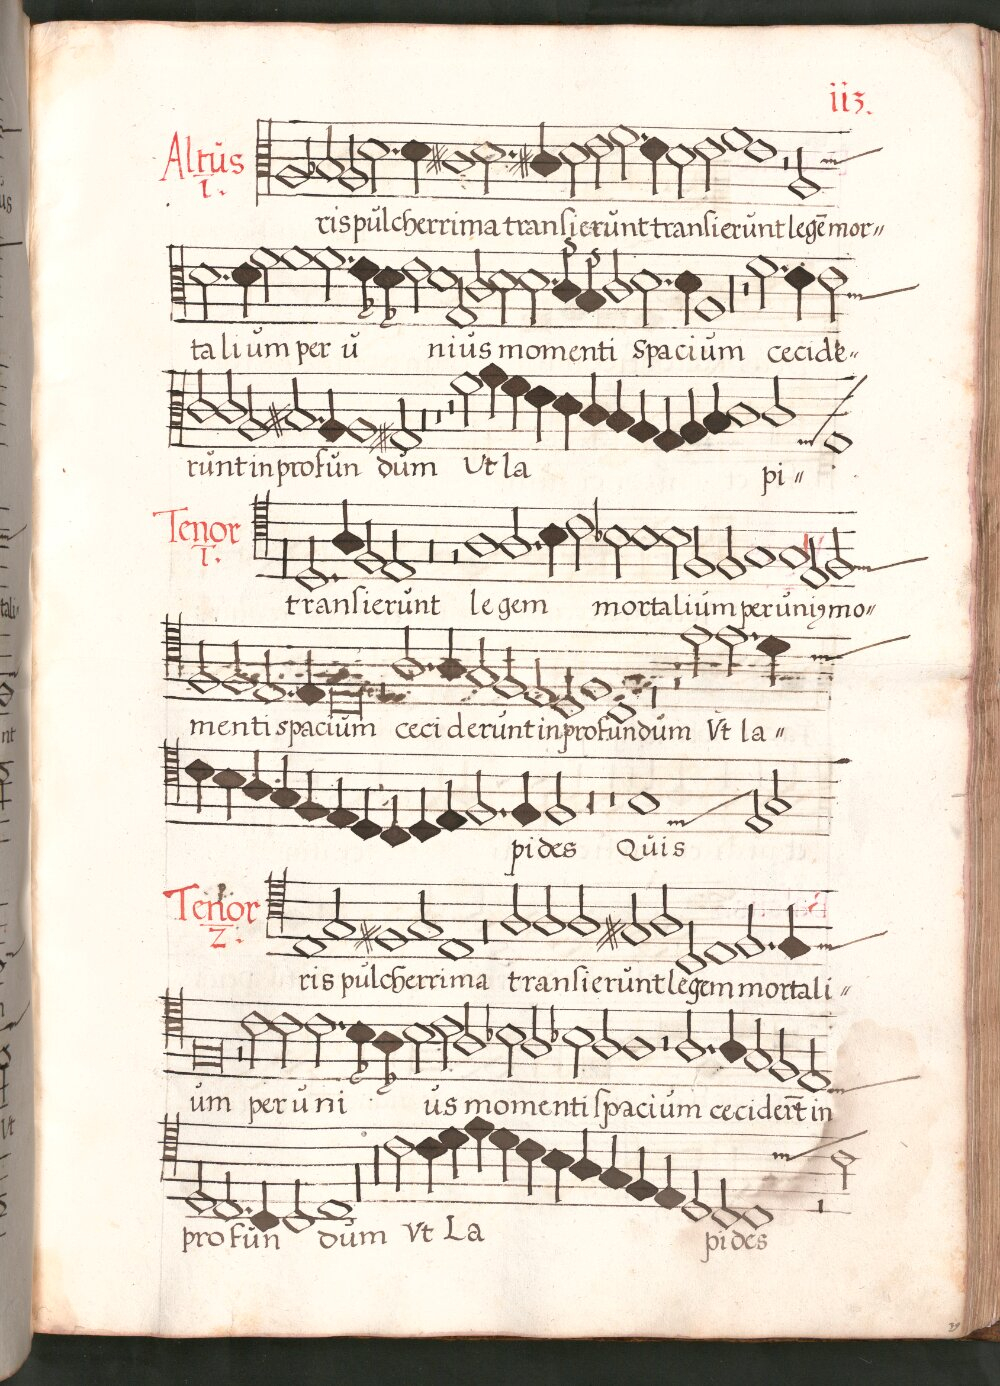 iiȝ.
Altus
1.
ris pulcherrima transierunt transierunt legē mor〃
talium per u nius momenti spacium cecide〃
runt in profun dum Ut la pi〃
Tenor
1.
transierunt legem mortalium per uniꝯ mo〃
menti spacium ceciderunt in profundum Vt la〃
pides Quis
Tenor
2.
ris pulcherrima transierunt legem mortali〃
um per uni us momenti spacium cecidert̄ in
profun dum Vt La pides